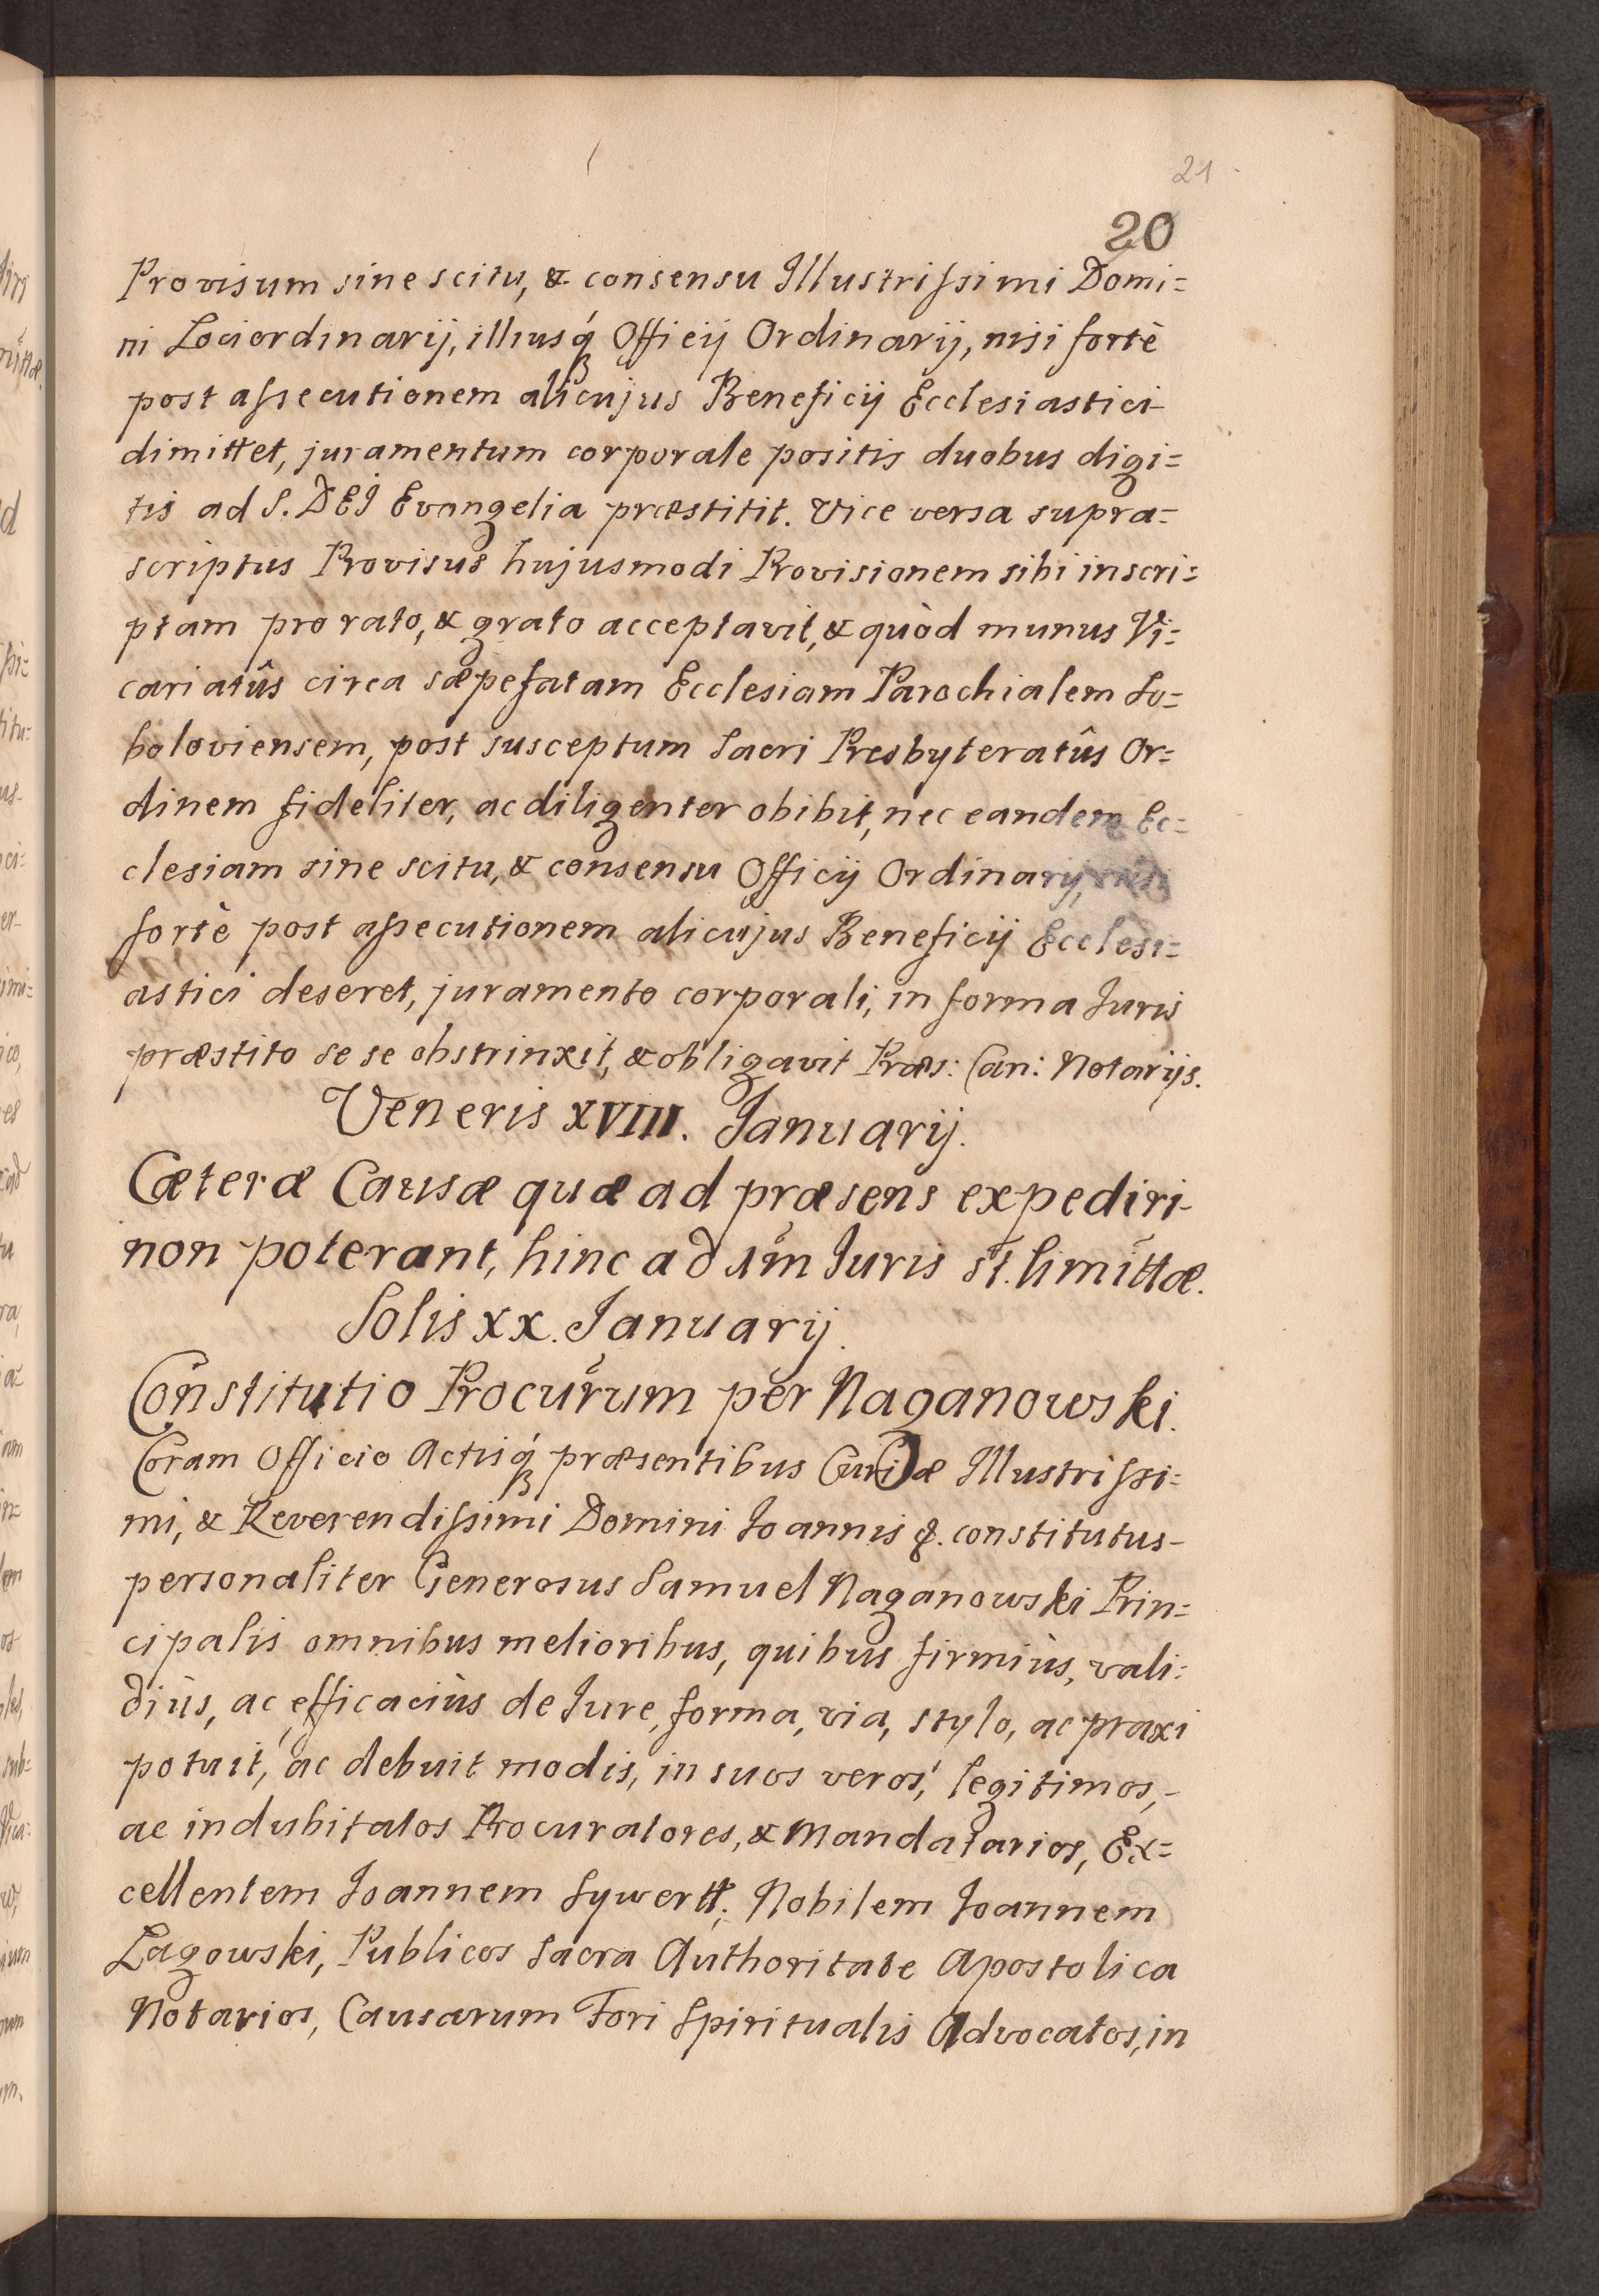 21
20
Provisum sine scitu, & consensu Illustrissimi Domi=
ni Lociordinarij, illiusq́ Officij Ordinarij, nisi fortè
post assecutionem alicujus Beneficij Ecclesiastici
dimittet, juramentum corporale positis duobus digi=
tis ad S. DEI Evangelia præstitit. Vice versa supra=
scriptus Provisus hujusmodi Provisionem sibi inscri=
ptam pro rato, & grato acceptavit, & quòd munus Vi=
cariatûs circa sæpefatam Ecclesiam Parochialem So=
boloviensem, post susceptum Sacri Presbyteratûs Or=
dinem fideliter, ac diligenter obibit, nec eandem Ec=
clesiam sine scitu, & consensu Officij Ordinarij, nisi
fortè post assecutionem alicujus Beneficij Ecclesi=
astici deseret, juramento corporali, in forma Juris
præstito se se obstrinxit, & obligavit Præs: Can: Notarijs.
Veneris XVIII. Januarij.
Cæteræ Causæ quæ ad præsens expediri
non poterant, hinc ad 1m̃ Juris st. limittæ.
Solis XX. Januarij.
Constitutio Procũrum per Naganowski.
Coram Officio Actisq́ præsentibus Curiæ Illustrissi=
mi, & Reverendissimi Domini Joannis &. constitutus
personaliter Generosus Samuel Naganowski Prin=
cipalis omnibus melioribus, quibus firmiùs, vali=
diùs, ac efficaciùs de Jure, forma, via, stylo, ac praxi
potuit, ac debuit modis, in suos veros, legitimos,
ac indubitatos Procuratores, & Mandatarios, Ex=
cellentem Joannem Sywertt; Nobilem Joannem
Lagowski, Publicos Sacra Authoritate Apostolica
Notarios, Causarum Fori Spiritualis Advocatos, in